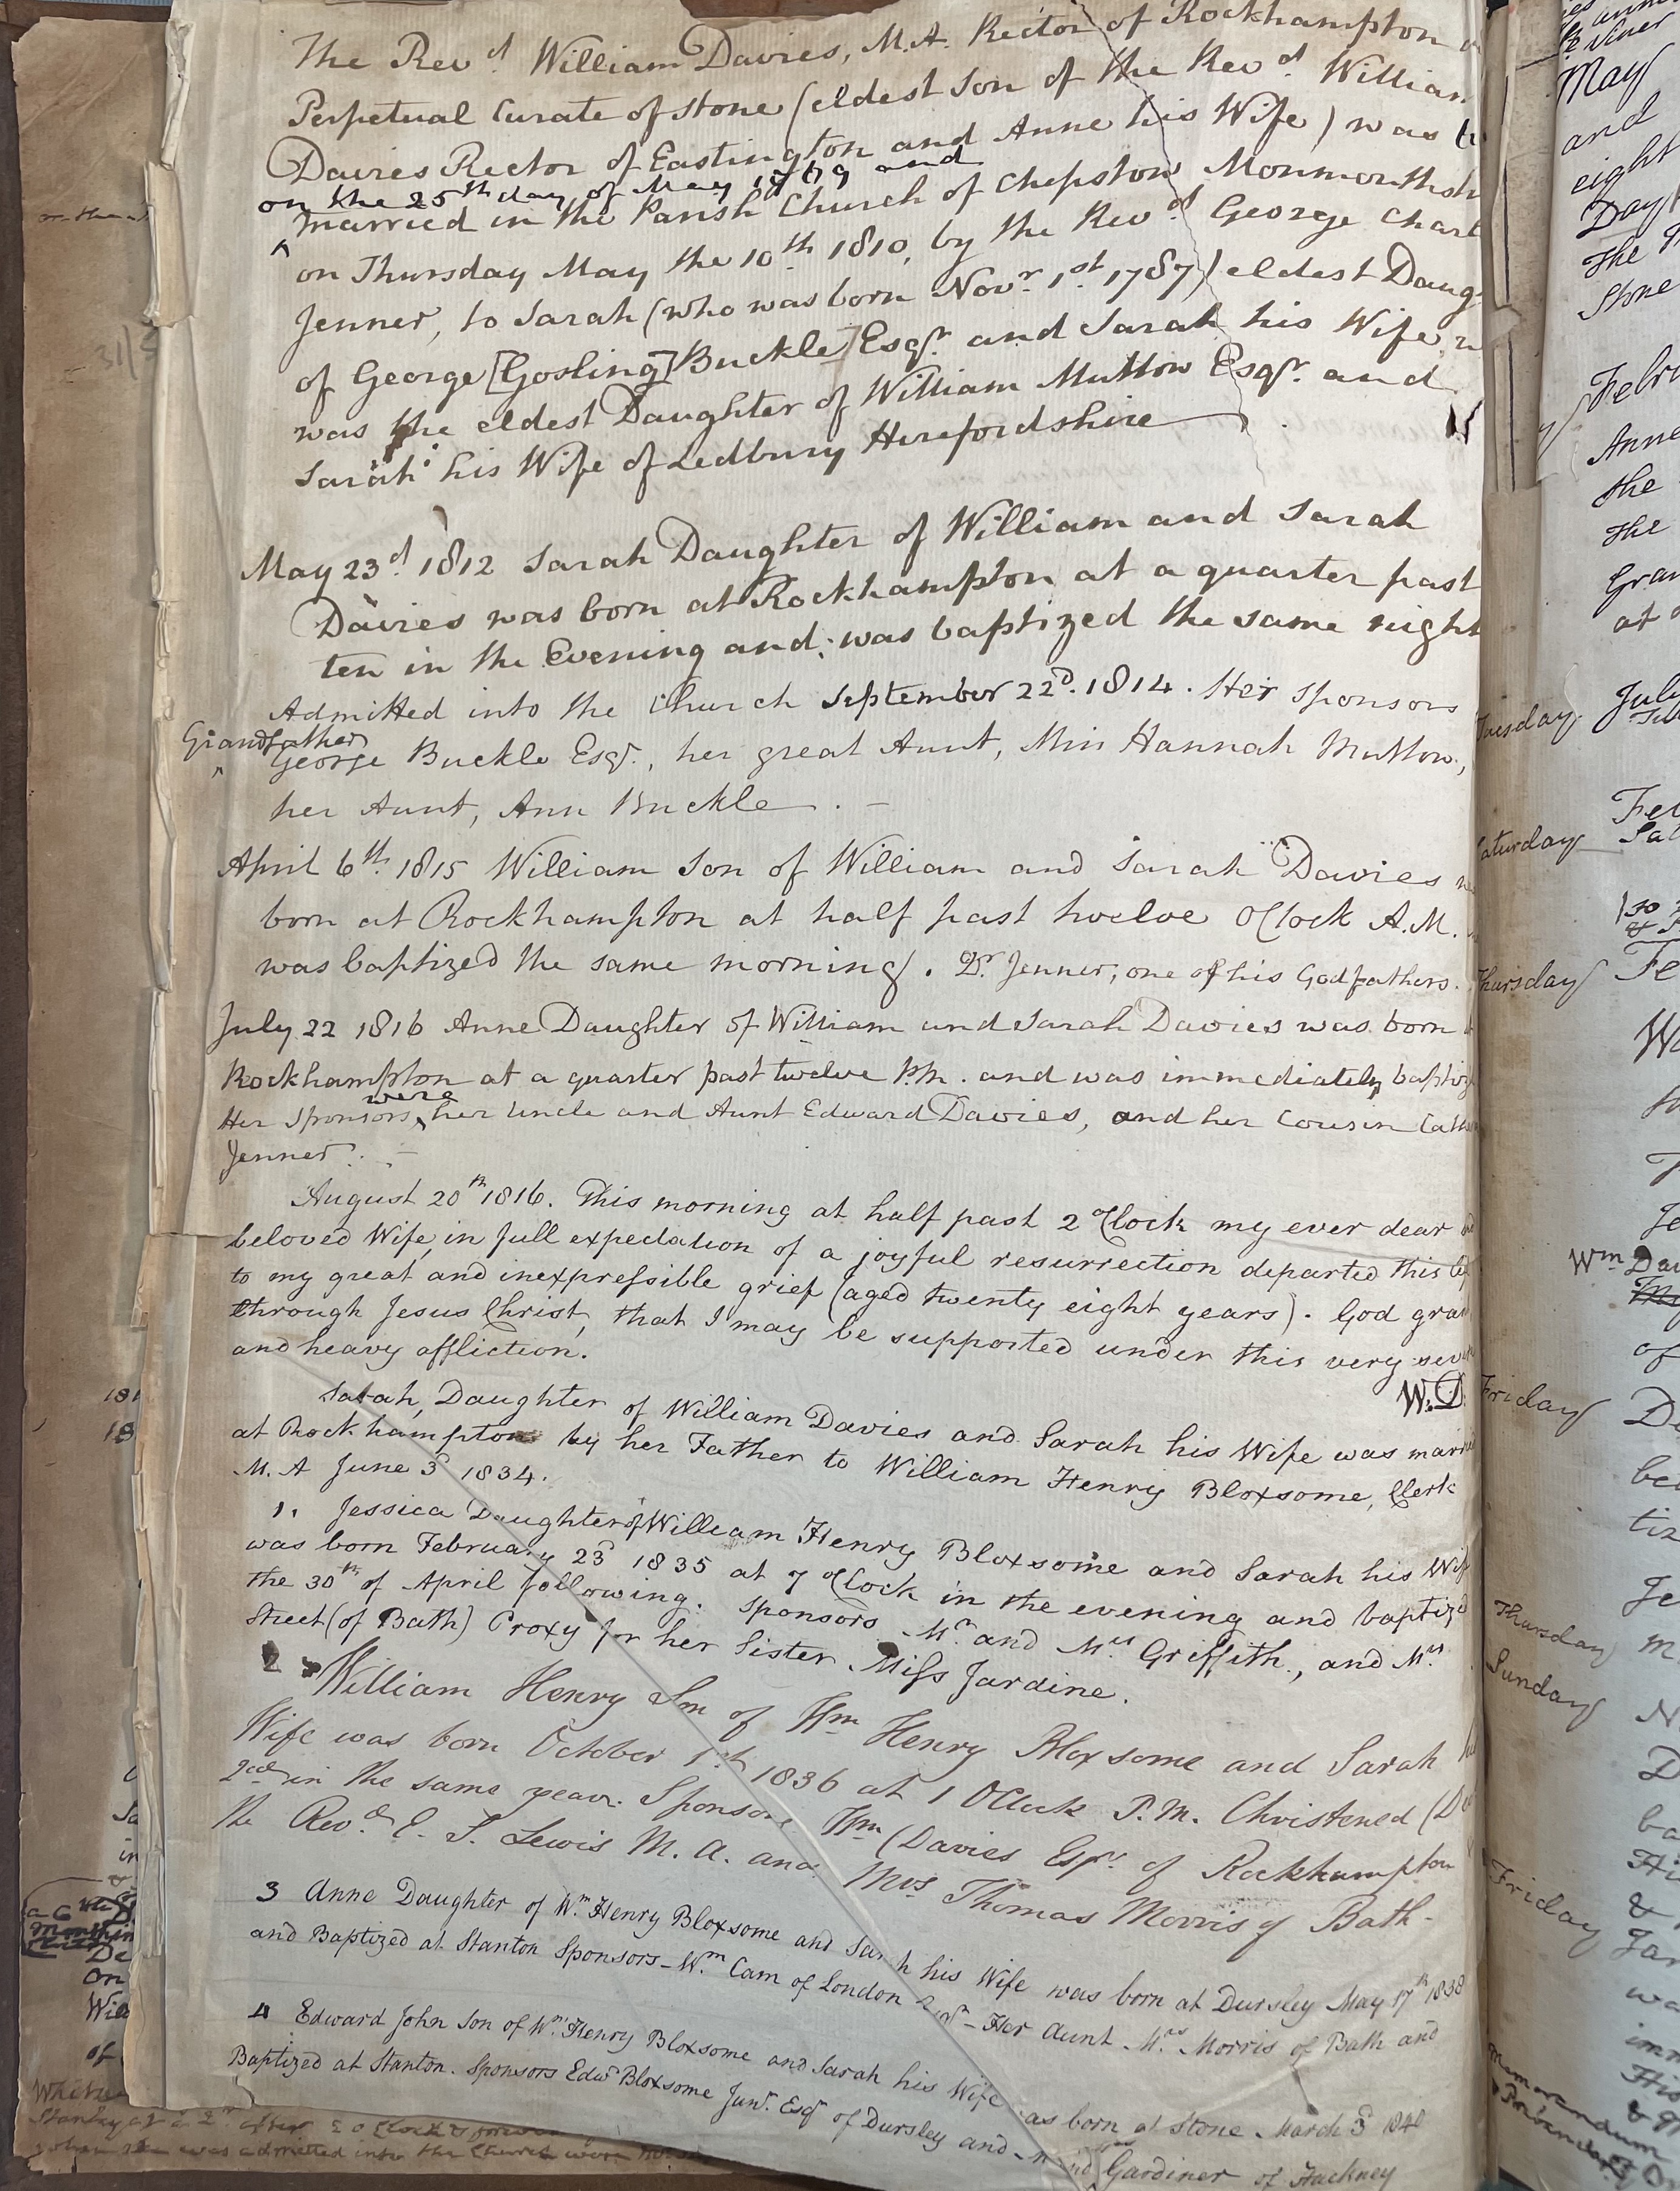 The Revd. William Davies, M.A. Rector of Rockhampton
Perpetual Curate of Stone (eldest Son of the Revd. William
Davies Rector of Eastington and Anne his Wife) was
on the 25th day of May and
married in the Parish Church of Chepstow Monmouthsh
on Thursday May the 10th 1810, by the Revd. George Charl
Jenner, to Sarah (who was born Novr. 1st. 1787) eldest Daug
of George [Gosling] Buckle] Esqr. and Sarah his Wife
was the eldest Daughter of William Mutlow Esqr. and
Sarah his Wife of Ledbury Herefordshire
May 23d. 1812 Sarah Daughter of William and Sarah
Davies was born at Rockhampton at a quarter past
ten in the Evening and was baptized the same night
Admitted into the Church September 22d. 1814. Her Sponsors
Grandfather
George Buckle Esqr., her great Aunt, Miss Hannah Mutlow,
her Aunt, Ann Buckle
April 6th. 1815 William Son of William and Sarah Davies
born at Rockhampton at half past twelve O'Clock A.M.
was baptized the same morning. Dr. Jenner, one of his Godfathers.
July 22 1816 Anne Daughter of William and Sarah Davies was born
Rockhampton at a quarter past twelve P.M. and was immediately baptiz
were
Her Sponsors, her Uncle and Aunt Edward Davies, and her Cousin Cath
Jenner.
August 20th 1816. This morning at half past 2 o'Clock my ever dear
beloved Wife, in full expectation of a joyful resurrection departed this
to my great and inexpressible grief (aged twenty eight years). God gra
through Jesus Christ, that I may be supported under this very sev
and heavy affliction.
W.D.
Sarah, Daughter of William Davies and Sarah his Wife was marri
at Rockhampton by her Father to William Henry Bloxsome, Clerk
M.A June 3d 1834.
1. Jessica Daughter of William Henry Bloxsome and Sarah his Wif
was born February 23d 1835 at 7 o'Clock in the evening and baptized
the 30th of April following. Sponsors Mr. and Mrs Griffith, and Mrs
Street (of Bath) Proxy for her Sister Miss Jardine.
2 William Henry Son of Wm Henry Bloxsome and Sarah
Wife was born October 1st 1836 at 1 OClock P.M. Christened
2nd in the same year. Sponsors Wm Davies Esqr. of Rockhampton
the Revd. E. T. Lewis M.A. and Mrs Thomas Morris of Bath-
3 Anne Daughter of Wm. Henry Bloxsome and Sarah his Wife was born at Dursley May 17th 1838
and Baptized at Stanton Sponsors - Wm. Cam of London Esqr - Her Aunt Mrs. Morris of Bath and
4 Edward John Son of Wm. Henry Bloxsome and Sarah his Wife was born at Stone March 3d 1840
Baptized at Stanton. Sponsors Edwd Bloxsome Junr. Esqr of Dursley and Gardiner of Hackney
May
and
eight
Day
the
Stone
Febr
Anne
the
the
Gran
at
Tuesday
July
Saturday
Thursday
Wm Dav
of
Friday
Thursday
Sunday
Friday
memorandum